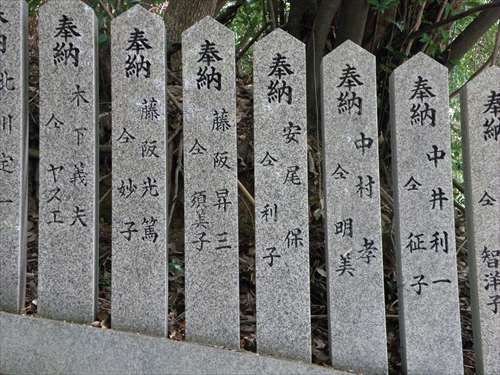 奉納
仝 智洋子
奉納
中井利一
仝 征子
奉納
中村孝
仝 明美
奉納
安尾保
仝 利子
奉納
藤阪昇三
仝 須美子
奉納
藤阪光篤
仝 妙子
奉納
木下義夫
仝 ヤスエ
納
北川定一